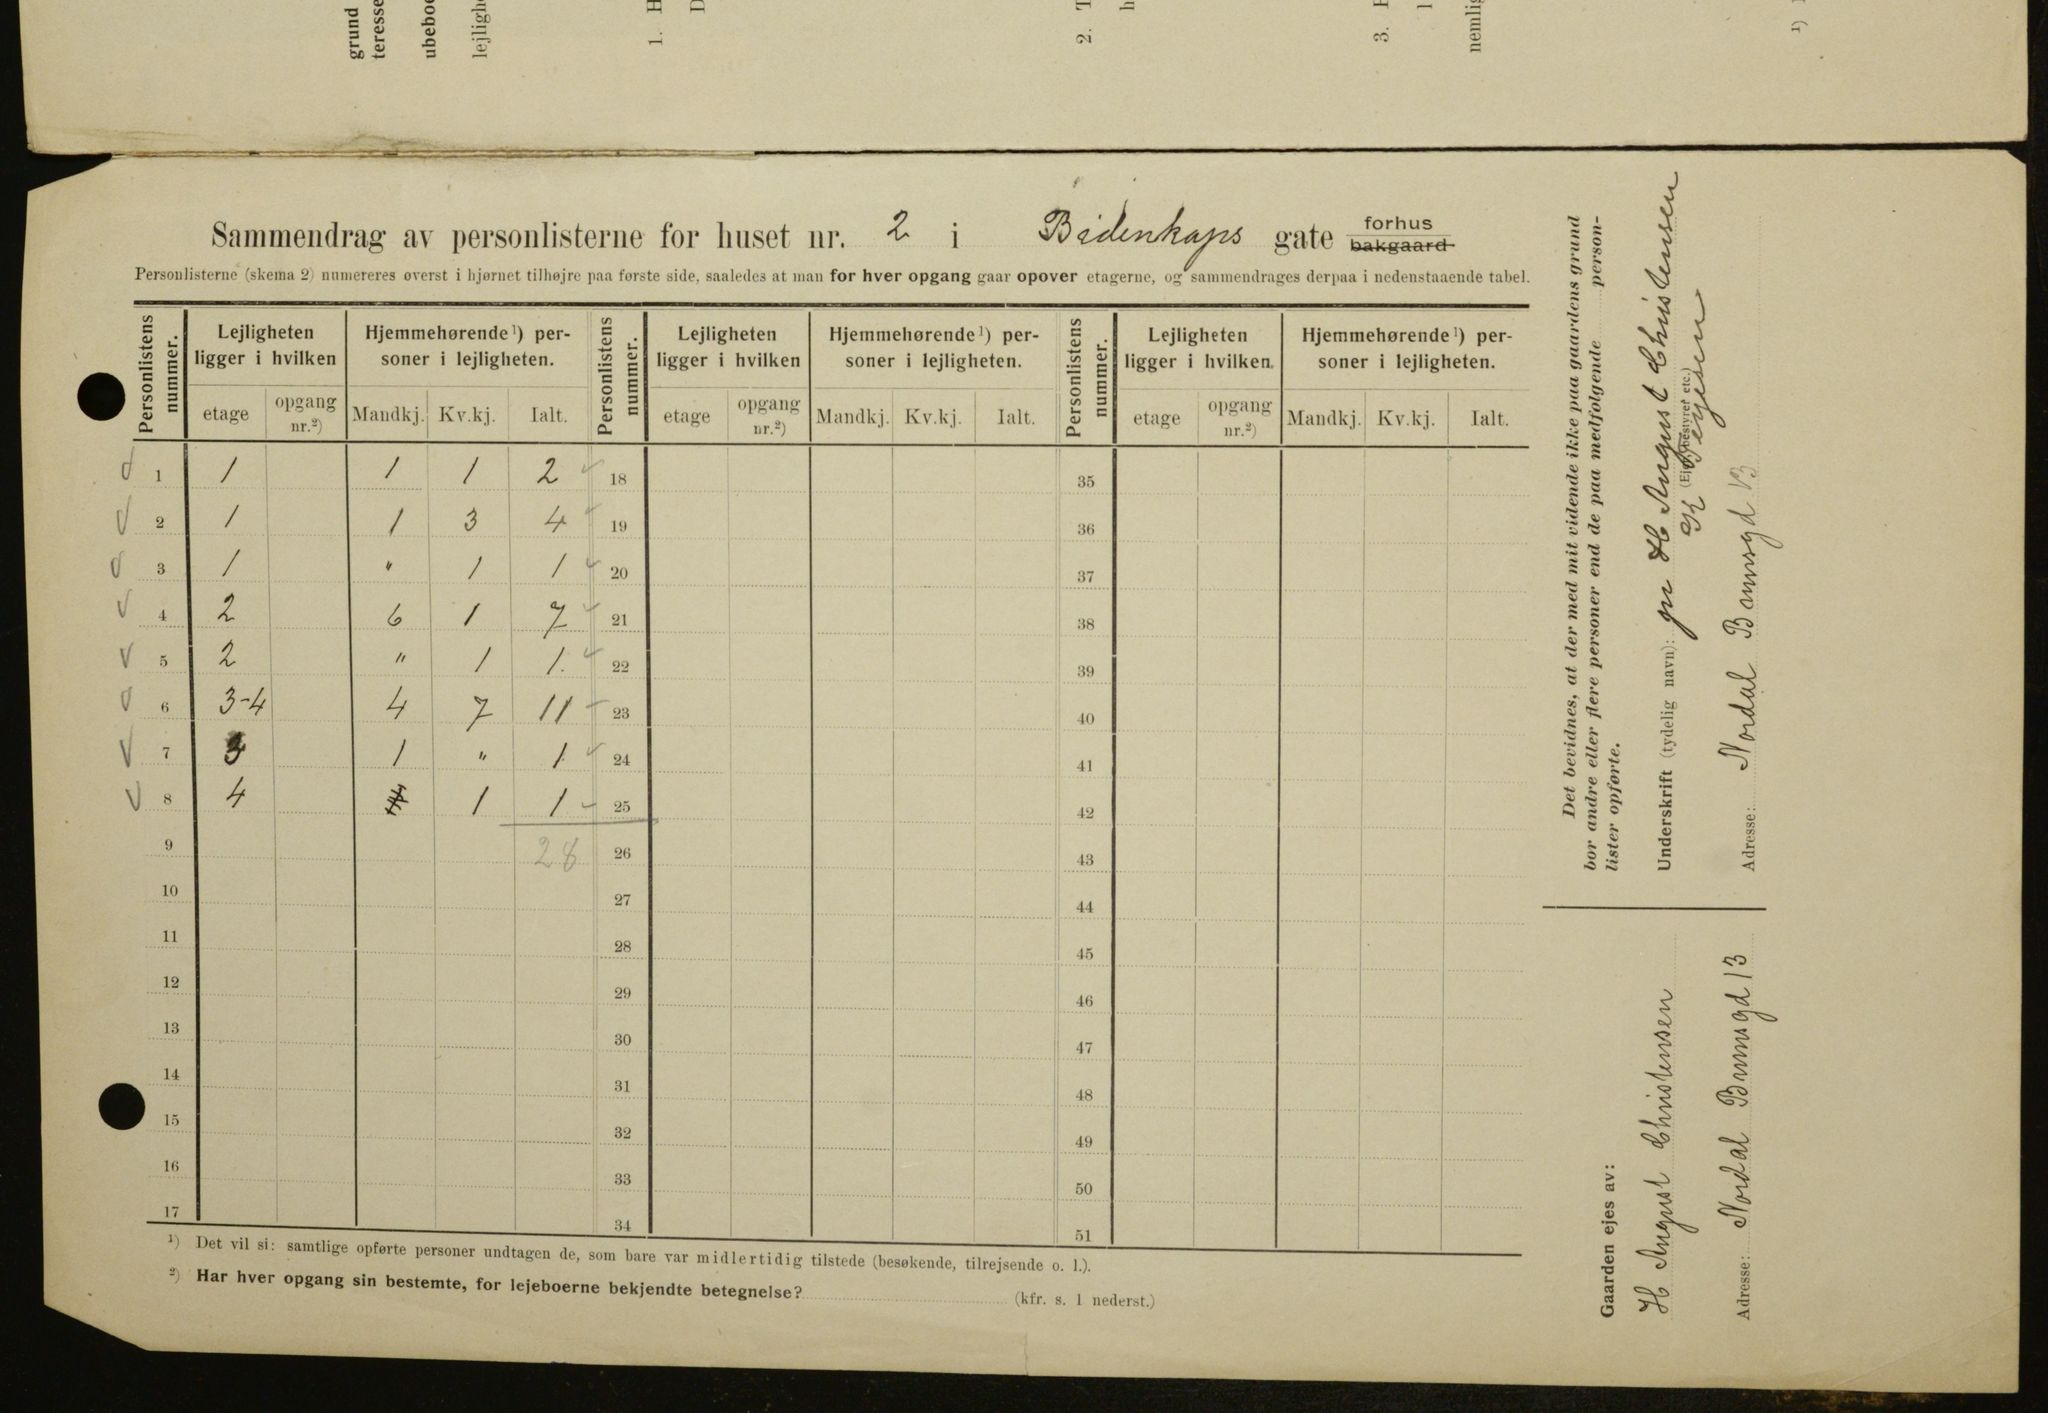 grund
teresse
ubeboe
lejlighe
1. H
D
2. T
h
3.
nemlig
1)
Sammendrag av personlisterne for huset nr. 2 i Bidenkaps gate forhus bakgaard
Personlisterne (skema 2) numereres øverst i hjørnet tilhøjre paa første side, saaledes at man for hver opgang gaar opover etagerne, og sammendrages derpaa i nedenstaaende tabel.
Personlistens nummer. Lejligheten ligger i hvilken Hjemmehørende 1) personer i lejligheten. Personlistens nummer. Lejligheten ligger i hvilken Hjemmehørende 1) personer i lejligheten. Personlistens nummer. Lejligheten ligger i hvilken. Hjemmehørende 1) personer i lejligheten.
etage opgang nr.2) Mandkj. Kv.kj. Ialt. etage opgang nr.2) Mandkj. Kv.kj. Ialt. etage opgang nr.2) Mandkj. Kv.kj. Ialt.
1 1 1 1 2 18 35
2 1 1 3 4 19 36
3 1 " 1 1 20 37
4 2 6 1 7 21 38
5 2 " 1 1. 22 39
6 3-4 4 7 11 23 40
7 3 1 " 1 24 41
8 4 1 1 25 42
9 28 26 43
10 27 44
11 28 45
12 29 46
13 30 47
14 31 48
15 32 49
16 33 50
17 34 51
1) Det vil si: samtlige opførte personer undtagen de, som bare var midlertidig tilstede (besøkende, tilrejsende o. l.).
2) Har hver opgang sin bestemte, for lejeboerne bekjendte betegnelse? (kfr. s. 1 nederst.)
Det bevidnes, at der med mit vidende ikke paa gaardens grund
bor andre eller flere personer end de paa medfølgende person-
lister opførte.
Underskrift (tydelig navn): pr H August Christensen
(Ejer, bestyrer etc.)
Adresse: Nordal Brunsgd 13
Gaarden ejes av:
H August Christensen
Adresse: Nordal Brunsgd 13